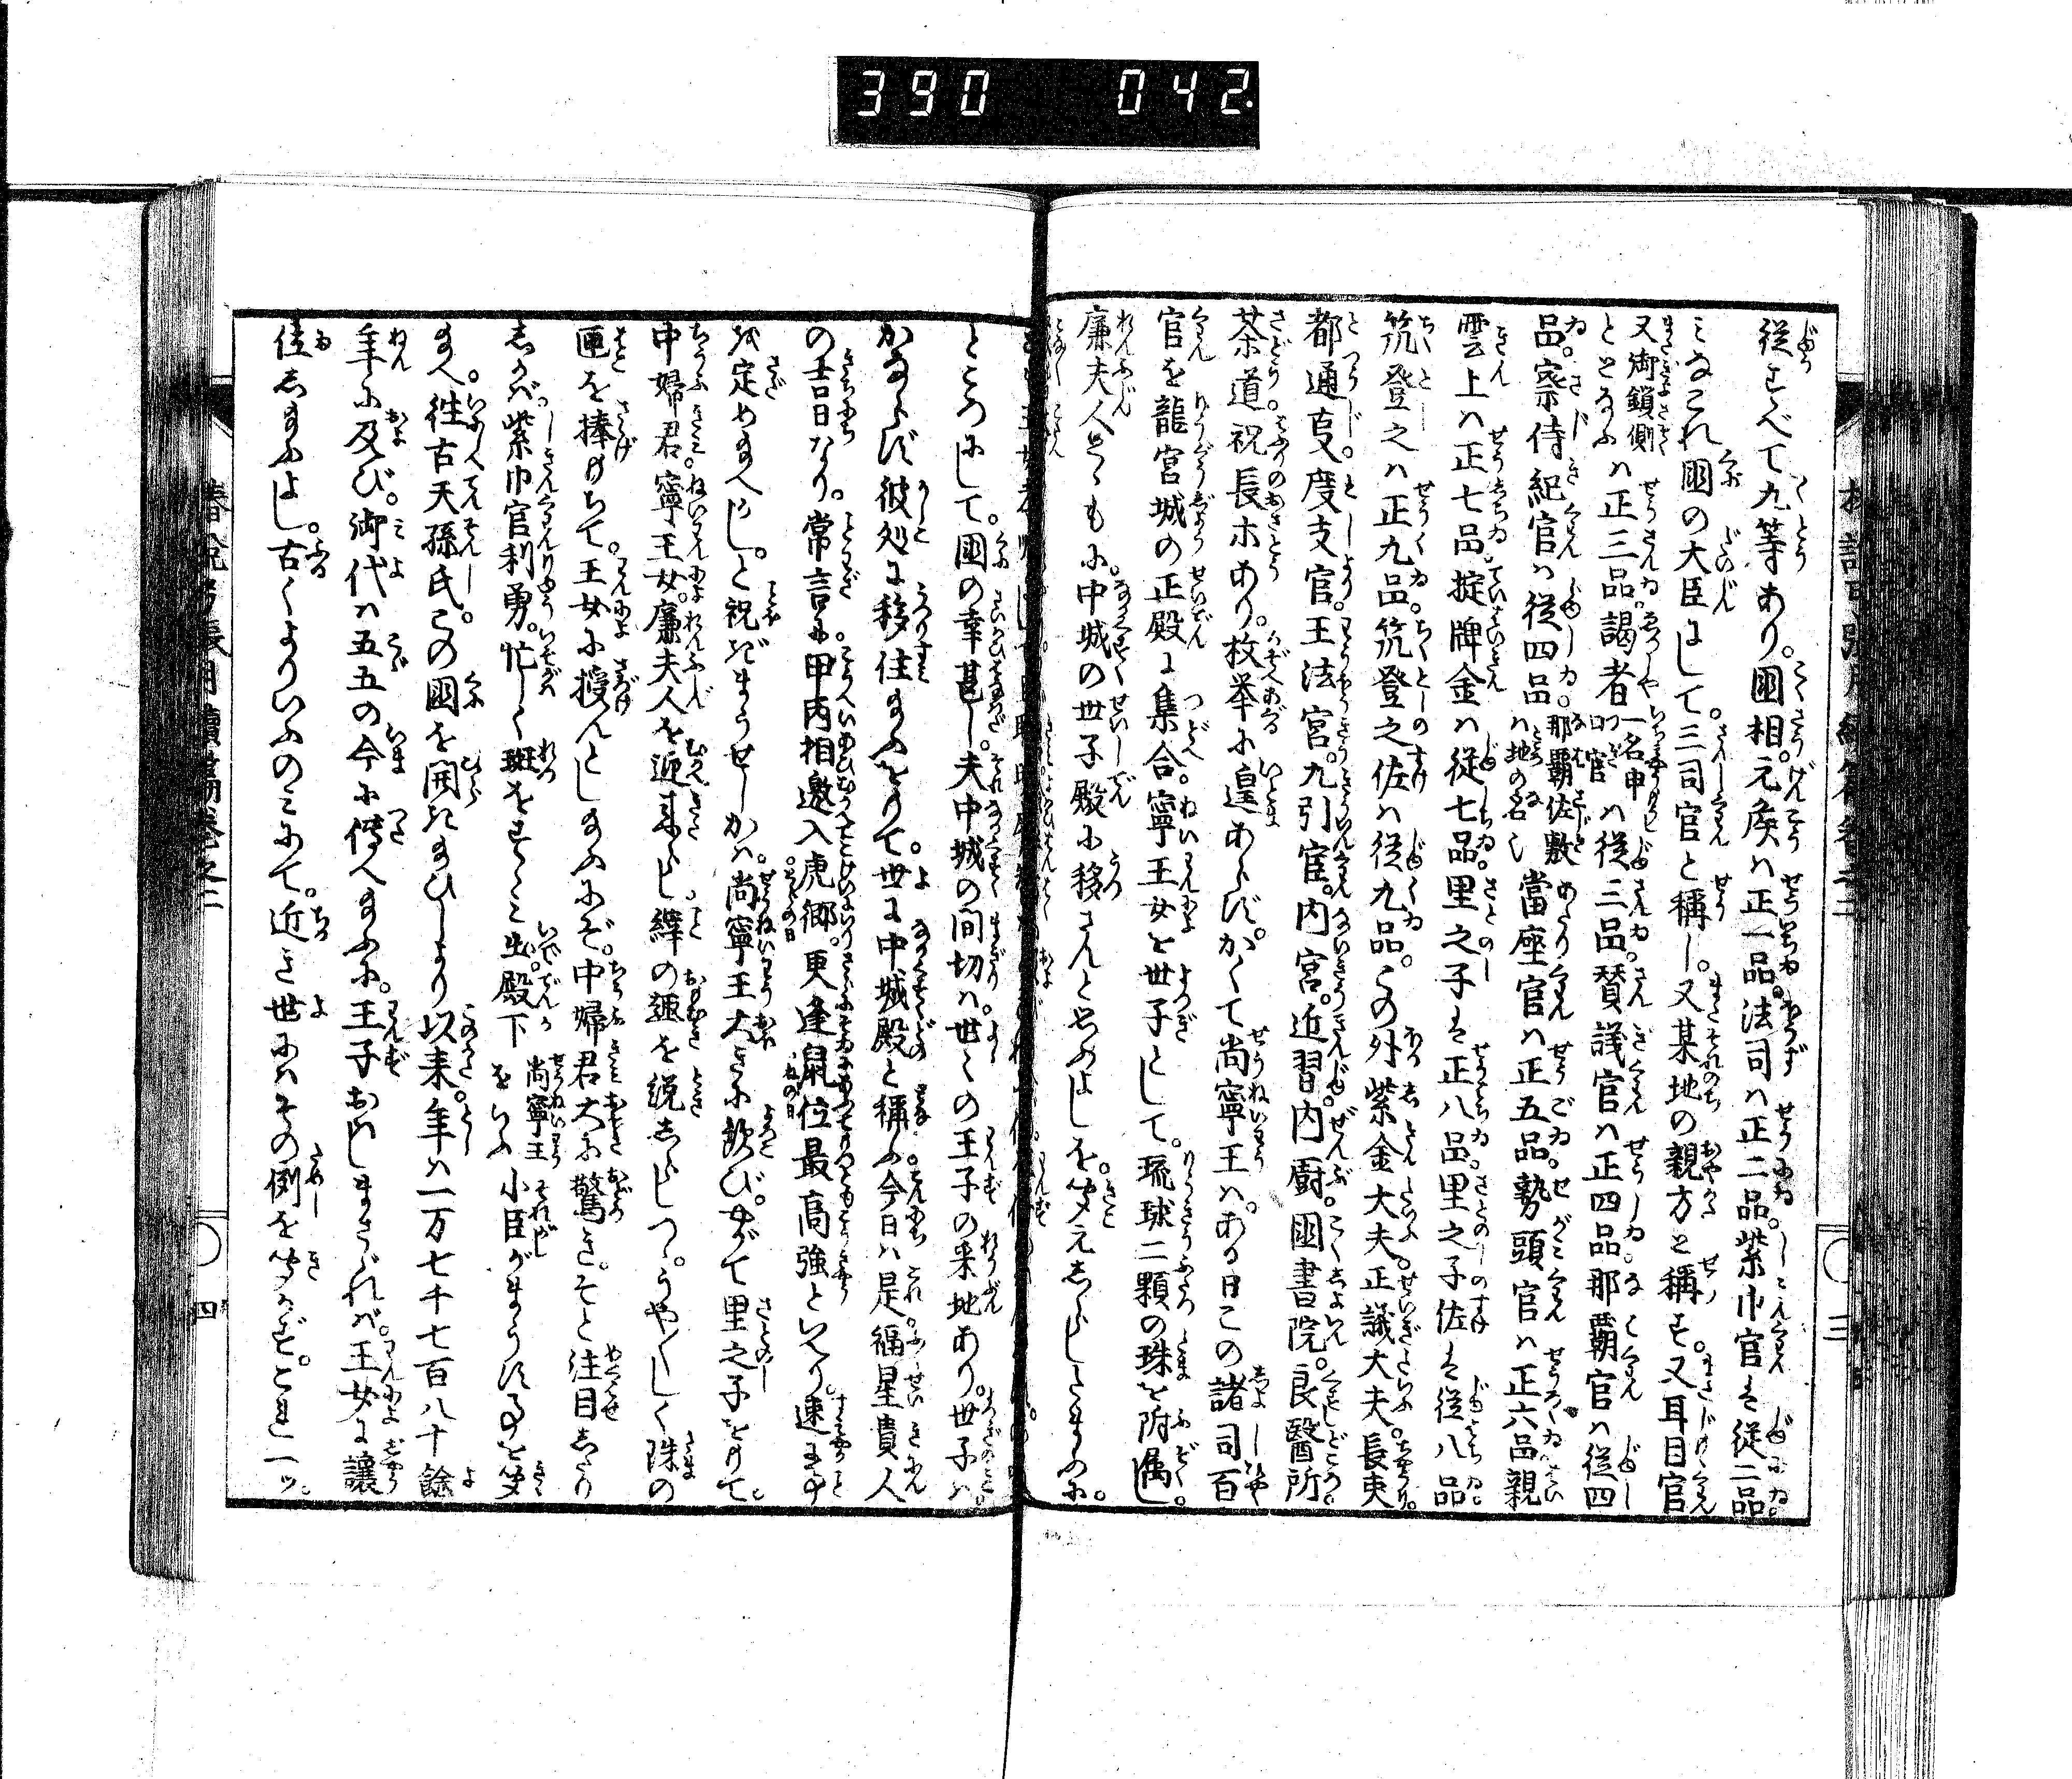 390 042.
従すべて九等あり。國相。元侯ハ正一品。法司ハ正二品紫巾官ハ従二品
みなこれ國の大臣にして。三司官と稱し。又某地の親方と稱す。又耳目官
又御鎖側
ととなふハ正三品謁者一名申口官ハ従三品。賛議官ハ正四品那覇官ハ従四
品。察侍紀官ハ従四品那覇佐敷ハ地の名し當座官ハ正五品勢頭官ハ正六品親
雲上ハ正七品掟牌金ハ従七品。里之子ハ正八品。里之子佐ハ従八品
筑登之ハ正九品筑登之佐ハ従九品。この外紫金大夫。正議大夫。長吏
都通事。度支官。王法宮。九引官。内宮。近習。内厨。國書院。良醫所
茶道祝長ホあり。枚挙に遑あらず。かくて尚寧王ハ。ある日この諸司百
官を龍宮城の正殿に集合。寧王女を世子として。琉球二顆の珠を附属し。
廉夫人もろともに。中城の世子殿に移さんと思ふよしを。聞えしらしたまふに。
ところにして。國の幸甚し。夫中城の間切ハ。世々の王子の采地あり。世子ハ。
かならず彼処に移住まふをもて。世に中城殿と稱ふ。今日ハ是。福星貴人
の吉日なり。常言に。甲丙相邀入虎郷。更逢鼠位最高強といへり。速に事
を定めまへかし。と祝ぎまうせしかハ。尚寧王大きに歓び。やがて里之子をもて。
中婦君。寧王女。廉夫人を迎來らし縡の趣を説しらしつ。うやうやしく珠の
匣を捧もちて。王女に授んとしまふにぞ。中婦君大に驚き。そと注目したり
しかバ。紫巾官利勇。忙しく班をすゝみ出。殿下尚寧王をいふ小臣がまうす事を聞
まへ。徃古天孫氏。この國を開きまひしより以来。年ハ一万七千七百八十餘
年に及び。御代ハ五五の今に傳へまふに。王子おハしまさゞれバ。王女に讓
位しまふよし。古くよりいふのミにて。近き世にハその例を聞かず。これ一ツ。
椿説弓張月續篇巻之二
四
三